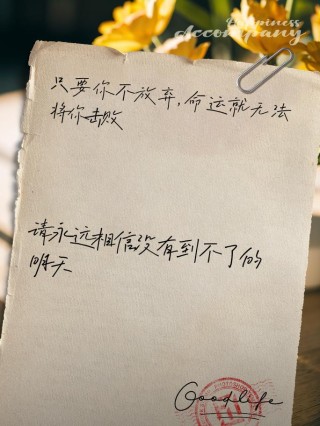 Happiness
Accompany
只要你不放弃,命运就无法
将你击败
请永远相信没有到不了的
明天
Goodlife